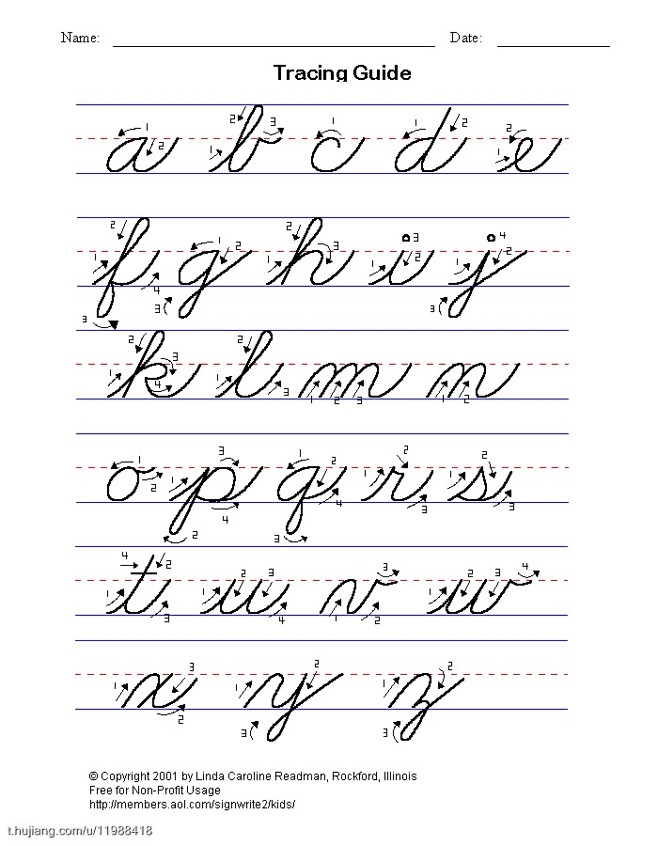 Name: Date:
Tracing Guide
a b c d e
f g h i j
k l m n
o p q r s
t u v w
x y z
© Copyright 2001 by Linda Caroline Readman, Rockford, Illinois
Free for Non-Profit Usage
http://members.aol.com/signwrite2/kids/
t.hujiang.com/u/11988418